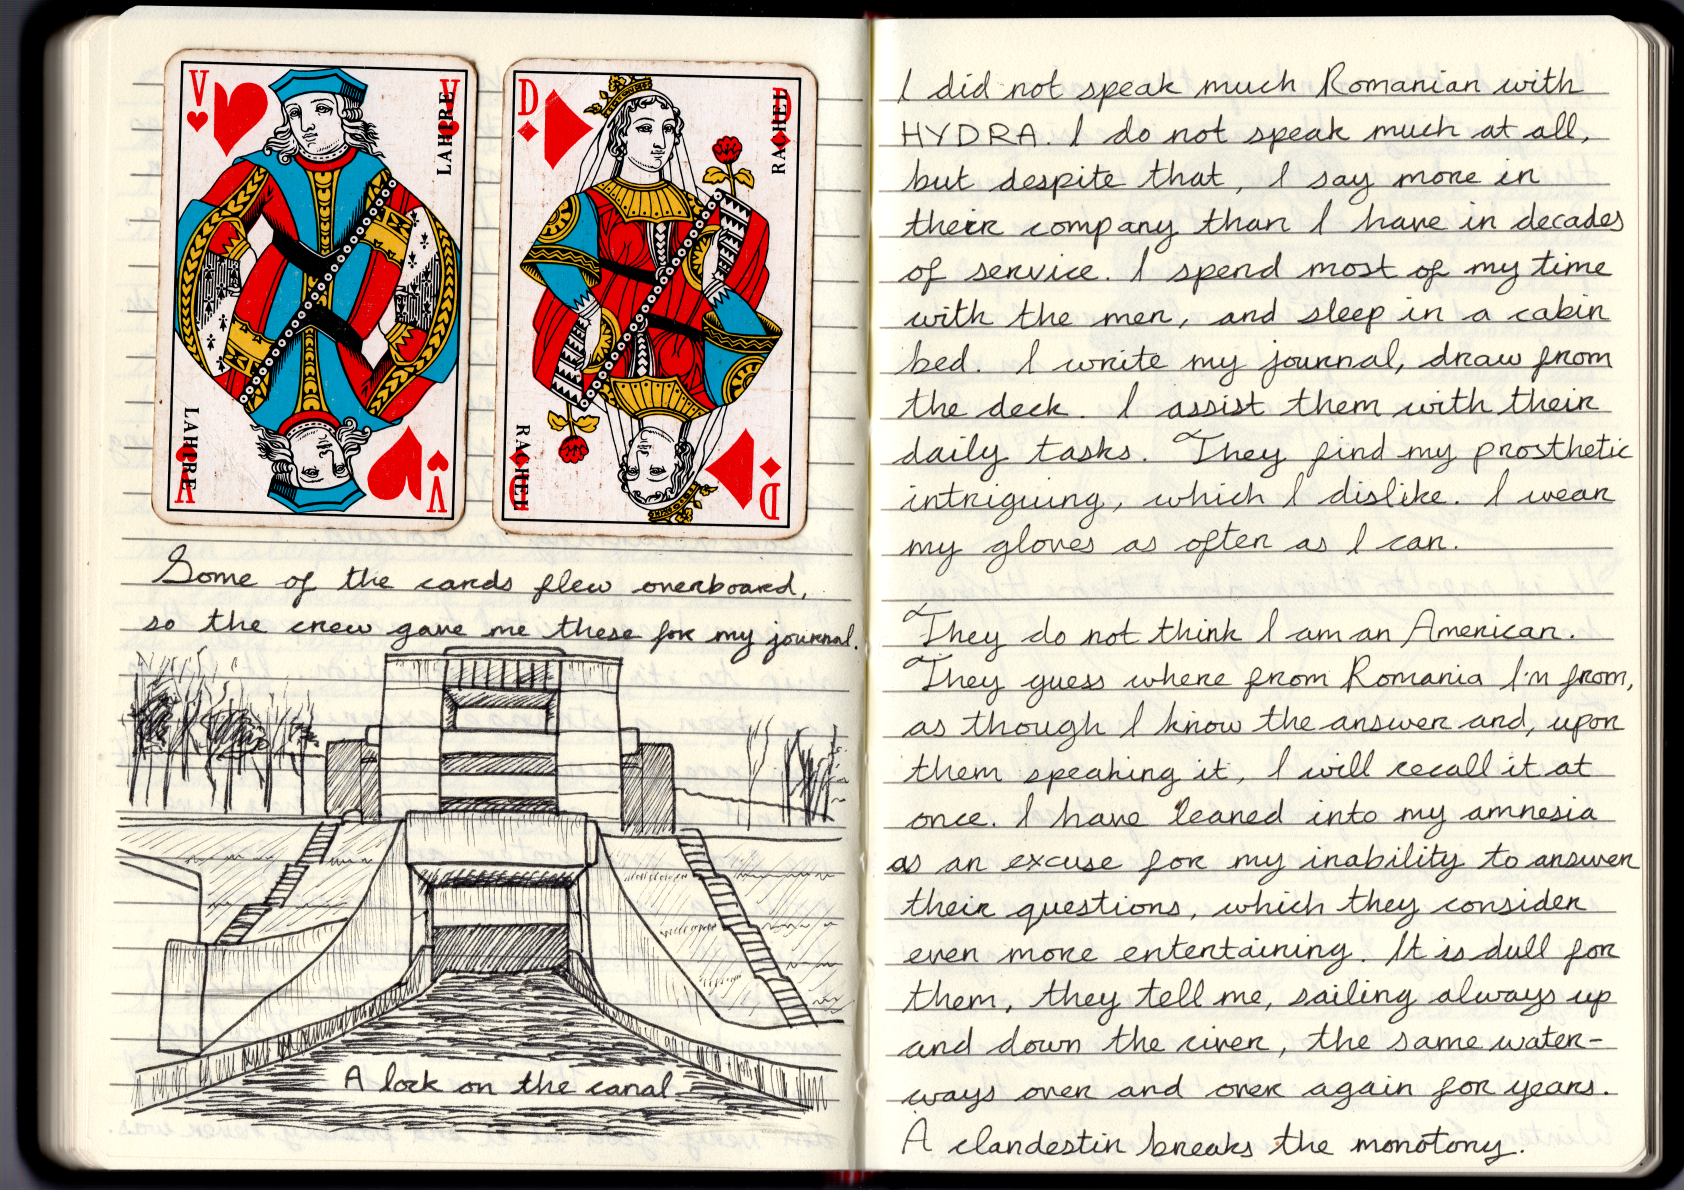 V
LAHIRE
V
LAHIRE
V
V
D
RACHEL
D
RACHEL
D
D
Some of the cards flew overboard,
so the crew gave me these for my journal.
A lock on the canal
I did not speak much Romanian with
HYDRA. I do not speak much at all,
but despite that, I say more in
their company than I have in decades
of service. I spend most of my time
with the men, and sleep in a cabin
bed. I write my journal, draw from
the deck. I assist them with their
daily tasks. They find my prosthetic
intriguing, which I dislike. I wear
my gloves as often as I can.
They do not think I am an American.
They guess where from Romania I'm from,
as though I know the answer and, upon
them speaking it, I will recall it at
once. I have leaned into my amnesia
as an excuse for my inability to answer
their questions, which they consider
even more entertaining. It is dull for
them, they tell me, sailing always up
and down the river, the same water-
ways over and over again for years.
A clandestin breaks the monotony.